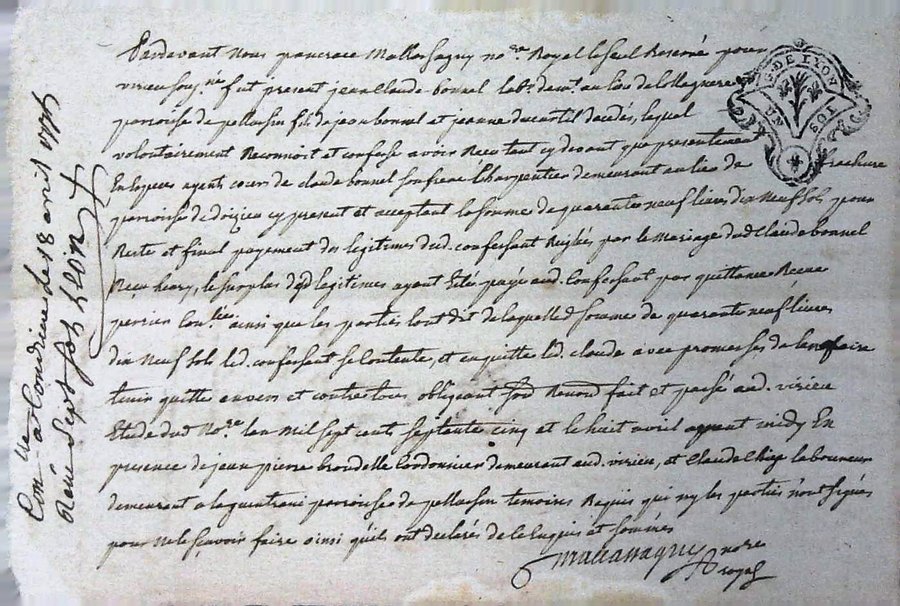 Pardevant Nous pancrace Mallassagny no.re Royal le seul Reservé pour
virieu sous.né fut present jean Claude bonnel lab.r demt. au lieu de
parroisse de pellussin fils de jean bonnel et jeanne ducurtil decedés, lequel
volontairement Reconnoit et confesse avoir Reçu tant cy devant que presentement
En Especes ayants cours de claude bonnel son frere Charpentier demeurant au lieu de frechure
parroisse de doizieu cy present et acceptant la somme de quarante neuf livres dix Neuf sols pour
Reste et final payement des legitimes dud. confessant Reiglés par le Mariage dud Claude bonnel
Reçu heavy, le surplus desd legitimes ayant Eté payé aud. Confessant par quittance Reçue
perrier Con.ler ainsi que les parties l'ont dit de laquelle d somme de quarante neuf livres
dix Neuf sols led. confessant se Contente, et en quitte led. claude avec promesses de l'en faire
tenir quitte envers et contre tous, obligeant fait et passé aud. virieu
Etude dud No.re l'an Mil sept cents septante cinq et le huit avril avant midy En
presence de jean pierre Cordonnier demeurant aud. virieu, et Claude laboureur
demeurant a parroisse de pellussin temoins Requis qui ny les parties n'ont signés
pour ne le sçavoir faire ainsi qu'ils ont declarés de ce Enquis et sommés
Mallassagny no.re
royal
G. DE LYON
UN SOL
Con.lé a Condrieu le 18 avril 1775
Reçu Sept sols